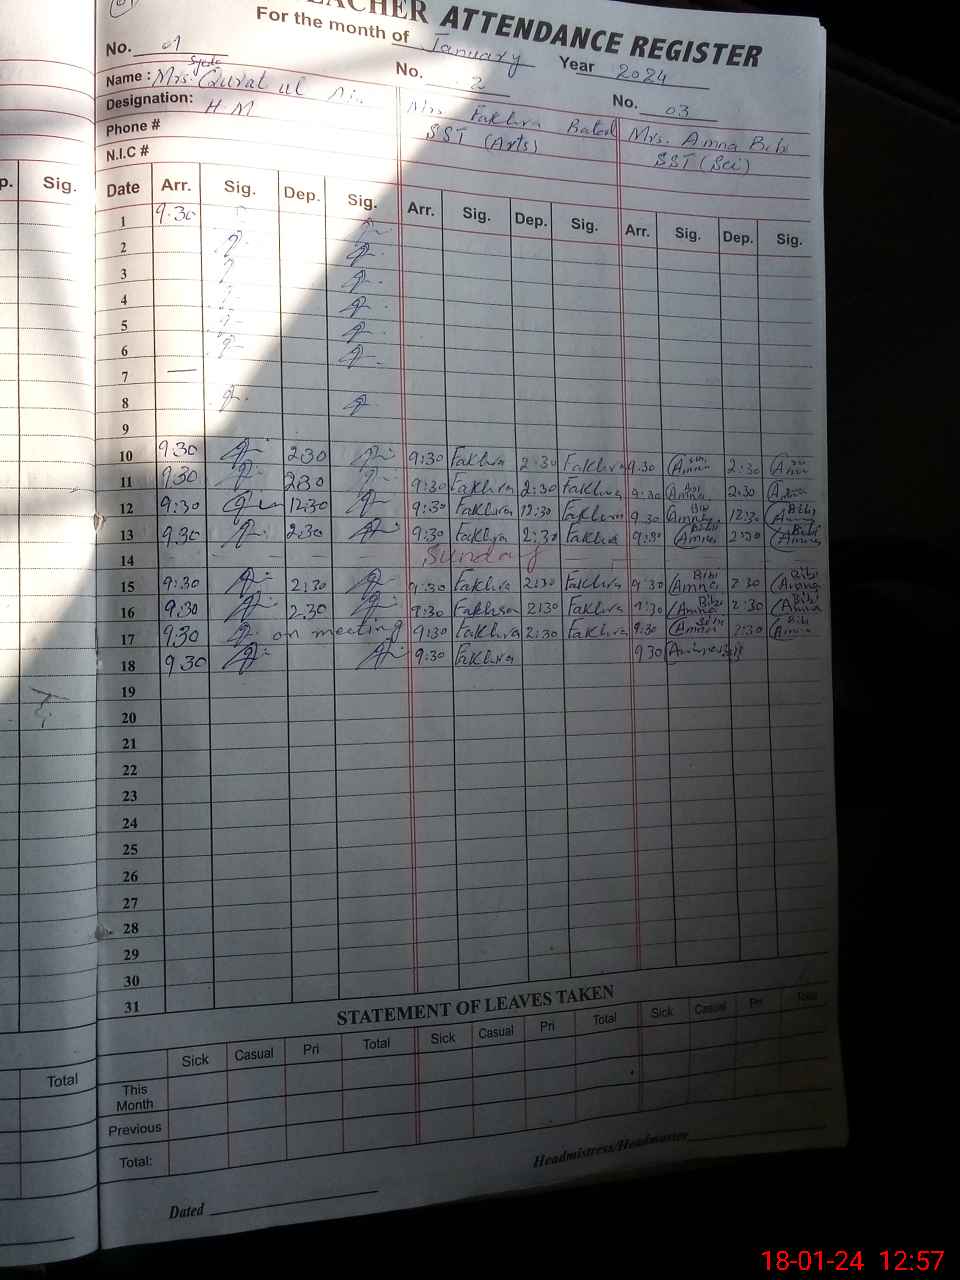 TEACHER ATTENDANCE REGISTER
For the month of January Year 2024
No. 01 No. 2 No. 03
Name : Mrs. Syeda Qurat ul
Designation: H.M
Phone #
N.I.C #
Fakhra Batool
SST (Arts)
Mrs. Amna Bibi
SST (Sci)
p. Sig.
Date Arr. Sig. Dep. Sig. Arr. Sig. Dep. Sig. Arr. Sig. Dep. Sig.
1 9.30
2
3
4
5
6
7 —
8
9
10 9.30 2.30 9:30 Fakhra 2:30 Fakhra 9.30 Amna 2:30 Amna
11 9.30 2.30 9:30 Fakhra 2:30 Fakhra 9:30 Amna 2.30
12 9:30 12:30 9:30 Fakhra 12:30 Fakhra 9.30 Amna Bibi 12:30 Amna Bibi
13 9.30 2.30 9:30 Fakhra 2:30 Fakhra 9:30 Amna Bibi 2:30 Amna Bibi
14 Sunday
15 9:30 2:30 9:30 Fakhra 2:30 Fakhra 9:30 Amna Bibi 2:30 Amna Bibi
16 9:30 2.30 9:30 Fakhra 2:30 Fakhra 9:30 Amna Bibi 2:30 Amna Bibi
17 9.30 on meeting 9:30 Fakhra 2:30 Fakhra 9:30 Amna Bibi 2:30 Amna Bibi
18 9.30 9:30 Fakhra 9.30
19
20
21
22
23
24
25
26
27
28
29
30
31
STATEMENT OF LEAVES TAKEN
Sick Casual Pri Total Sick Casual Pri Total Sick Casual Pri Total
Total
This Month
Previous
Total:
Headmistress/Headmaster
Dated
18-01-24 12:57